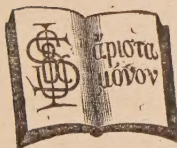 ἄριστα
μόνον